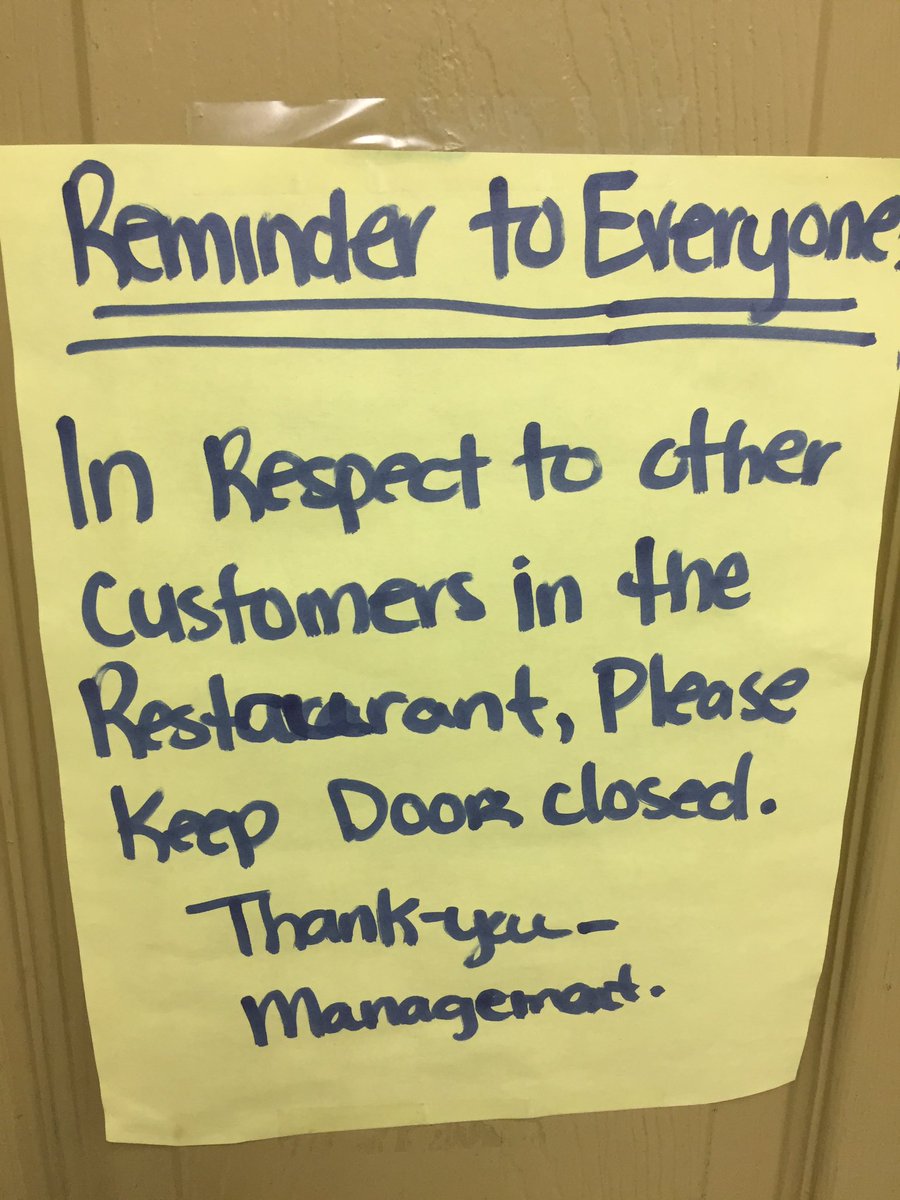 Reminder to Everyone:
In Respect to other
Customers in the
Restaurant, Please
Keep Door closed.
Thank-you-
Management.